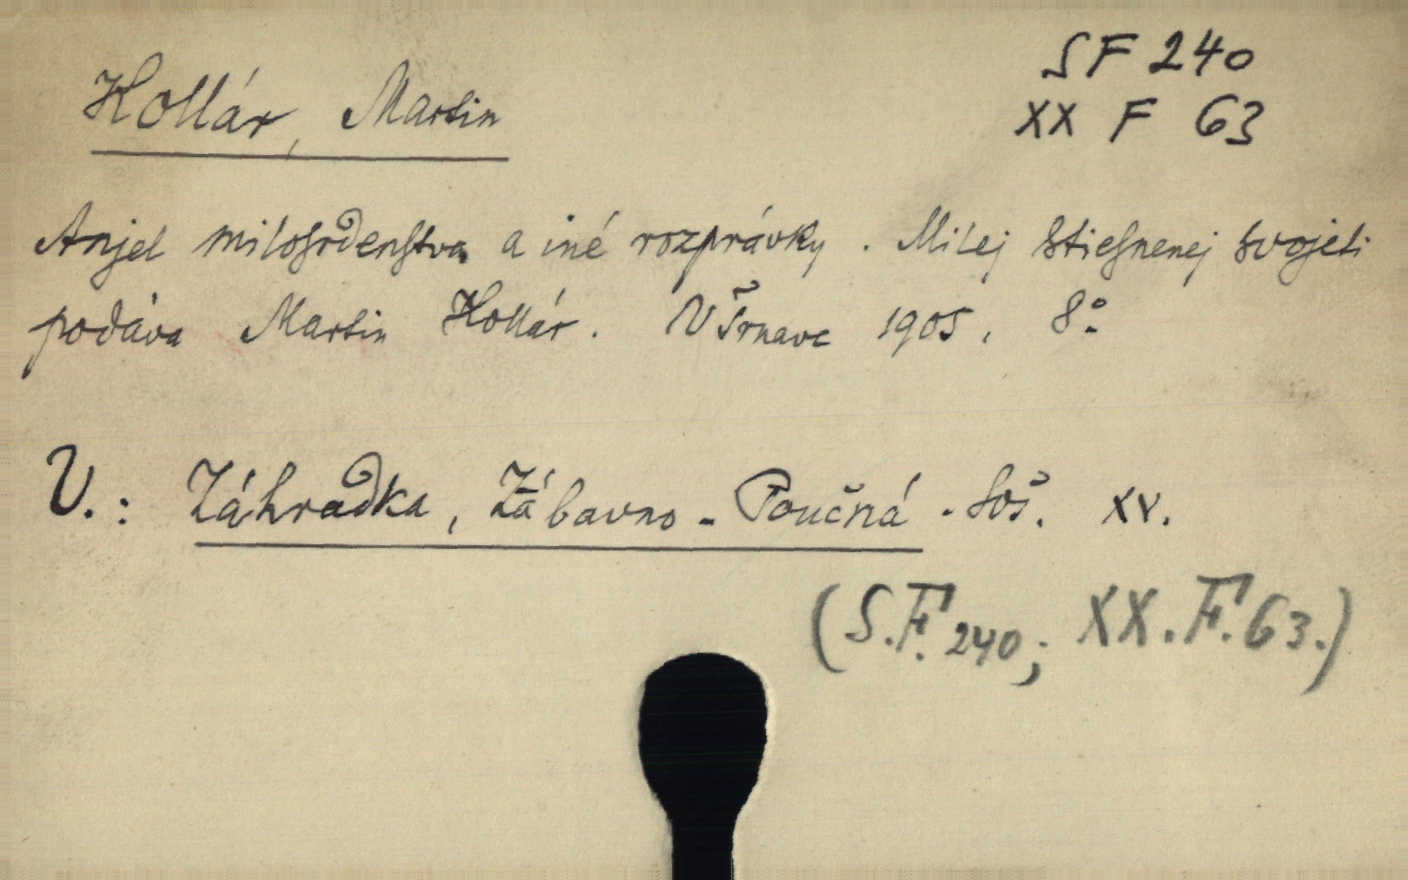 SF 240
Hollár, Martin
XX F 63
Anjel milosrdenstva a iné rozprávky. Milej stiesnenej svojeti
podáva Martin Hollár. V Trnave 1905. 8°
V.: Záhradka, Zábavno-Poučná. Soš. XV.
(S.F. 240; XX.F. 63.)